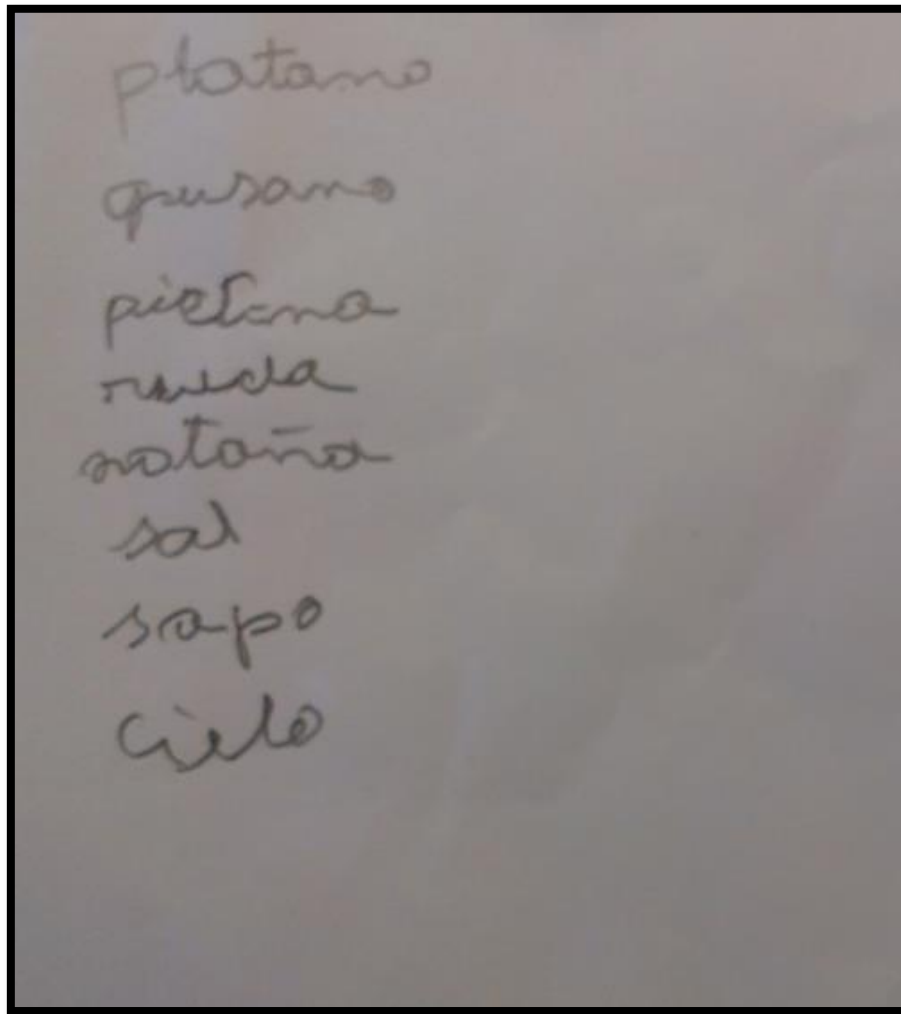 platano
gusano
pietana
rueda
notaña
sal
sapo
cielo